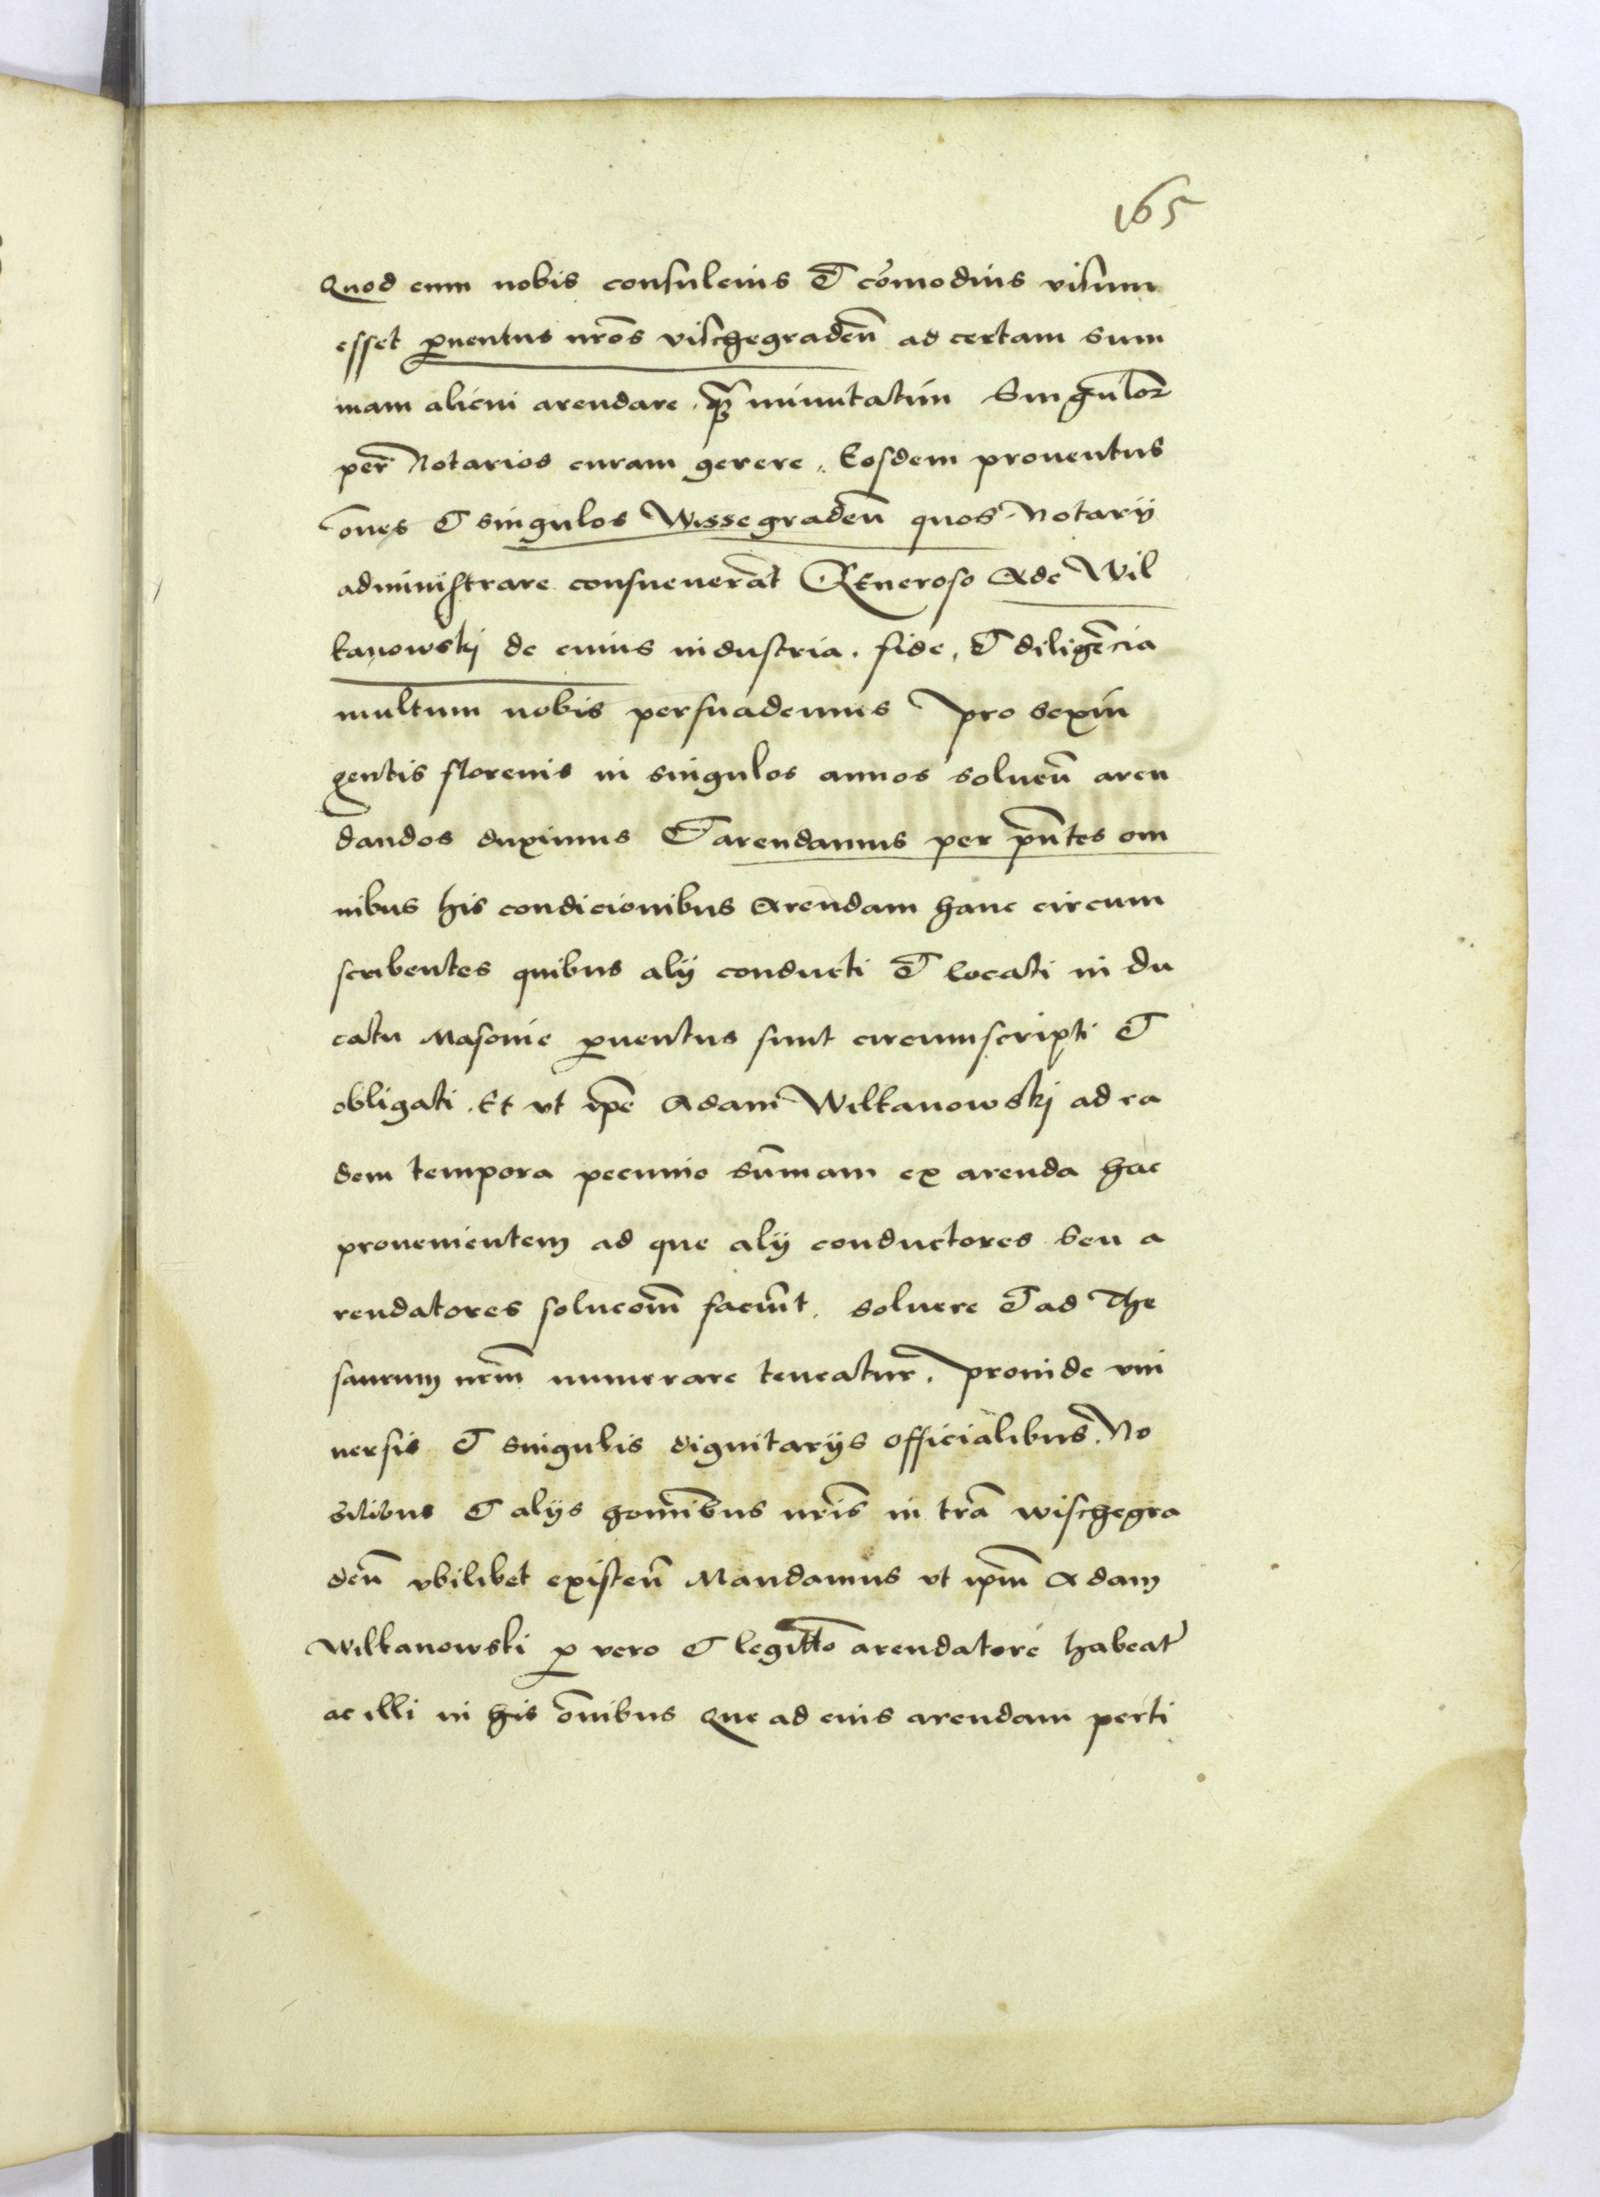 165
Quod cum nobis consulcius et cōmodius visum
esset ꝓuentus nr̄os vischegradeñ ad certam sum
mam alicui arendare. quā minutatim Singuloꝝ
per Notarios curam gerere. Eosdem prouentus
ōnes et singulos Wissegradeñ quos Notarij
administrare consueuerāt Generoso Ade Wil
kanowskj de cuius industria. fide, et diligēcia
multum nobis persuademus pro sexin
gentis florenis in singulos annos solueñ aren
dandos duximus Et arendamus per pn̄tes om
nibus his condicionibus Arendam hanc circum
scribentes quibus alij conducti et locati in du
catu Masouie ꝓuentus sunt circumscripti et
obligati. Et vt ip̄e Adam Wilkanowskj ad ea
dem tempora pecunie sūmam ex arenda hac
prouenientem ad que alij conductores seu a
rendatores solucoēm faciūt. soluere et ad The
saurum nr̄m numerare teneatur. Proinde vni
uersis et singulis dignitarijs officialibus. No
bilibus et alijs hominibus nr̄is in tr̄a wischegra
deñ vbilibet existeñ Mandamus vt ip̄m Adam
Wilkanowski ꝓ vero et legitt̄o arendatorē habeat
ac illi in his ōnibus Que ad eius arendam perti